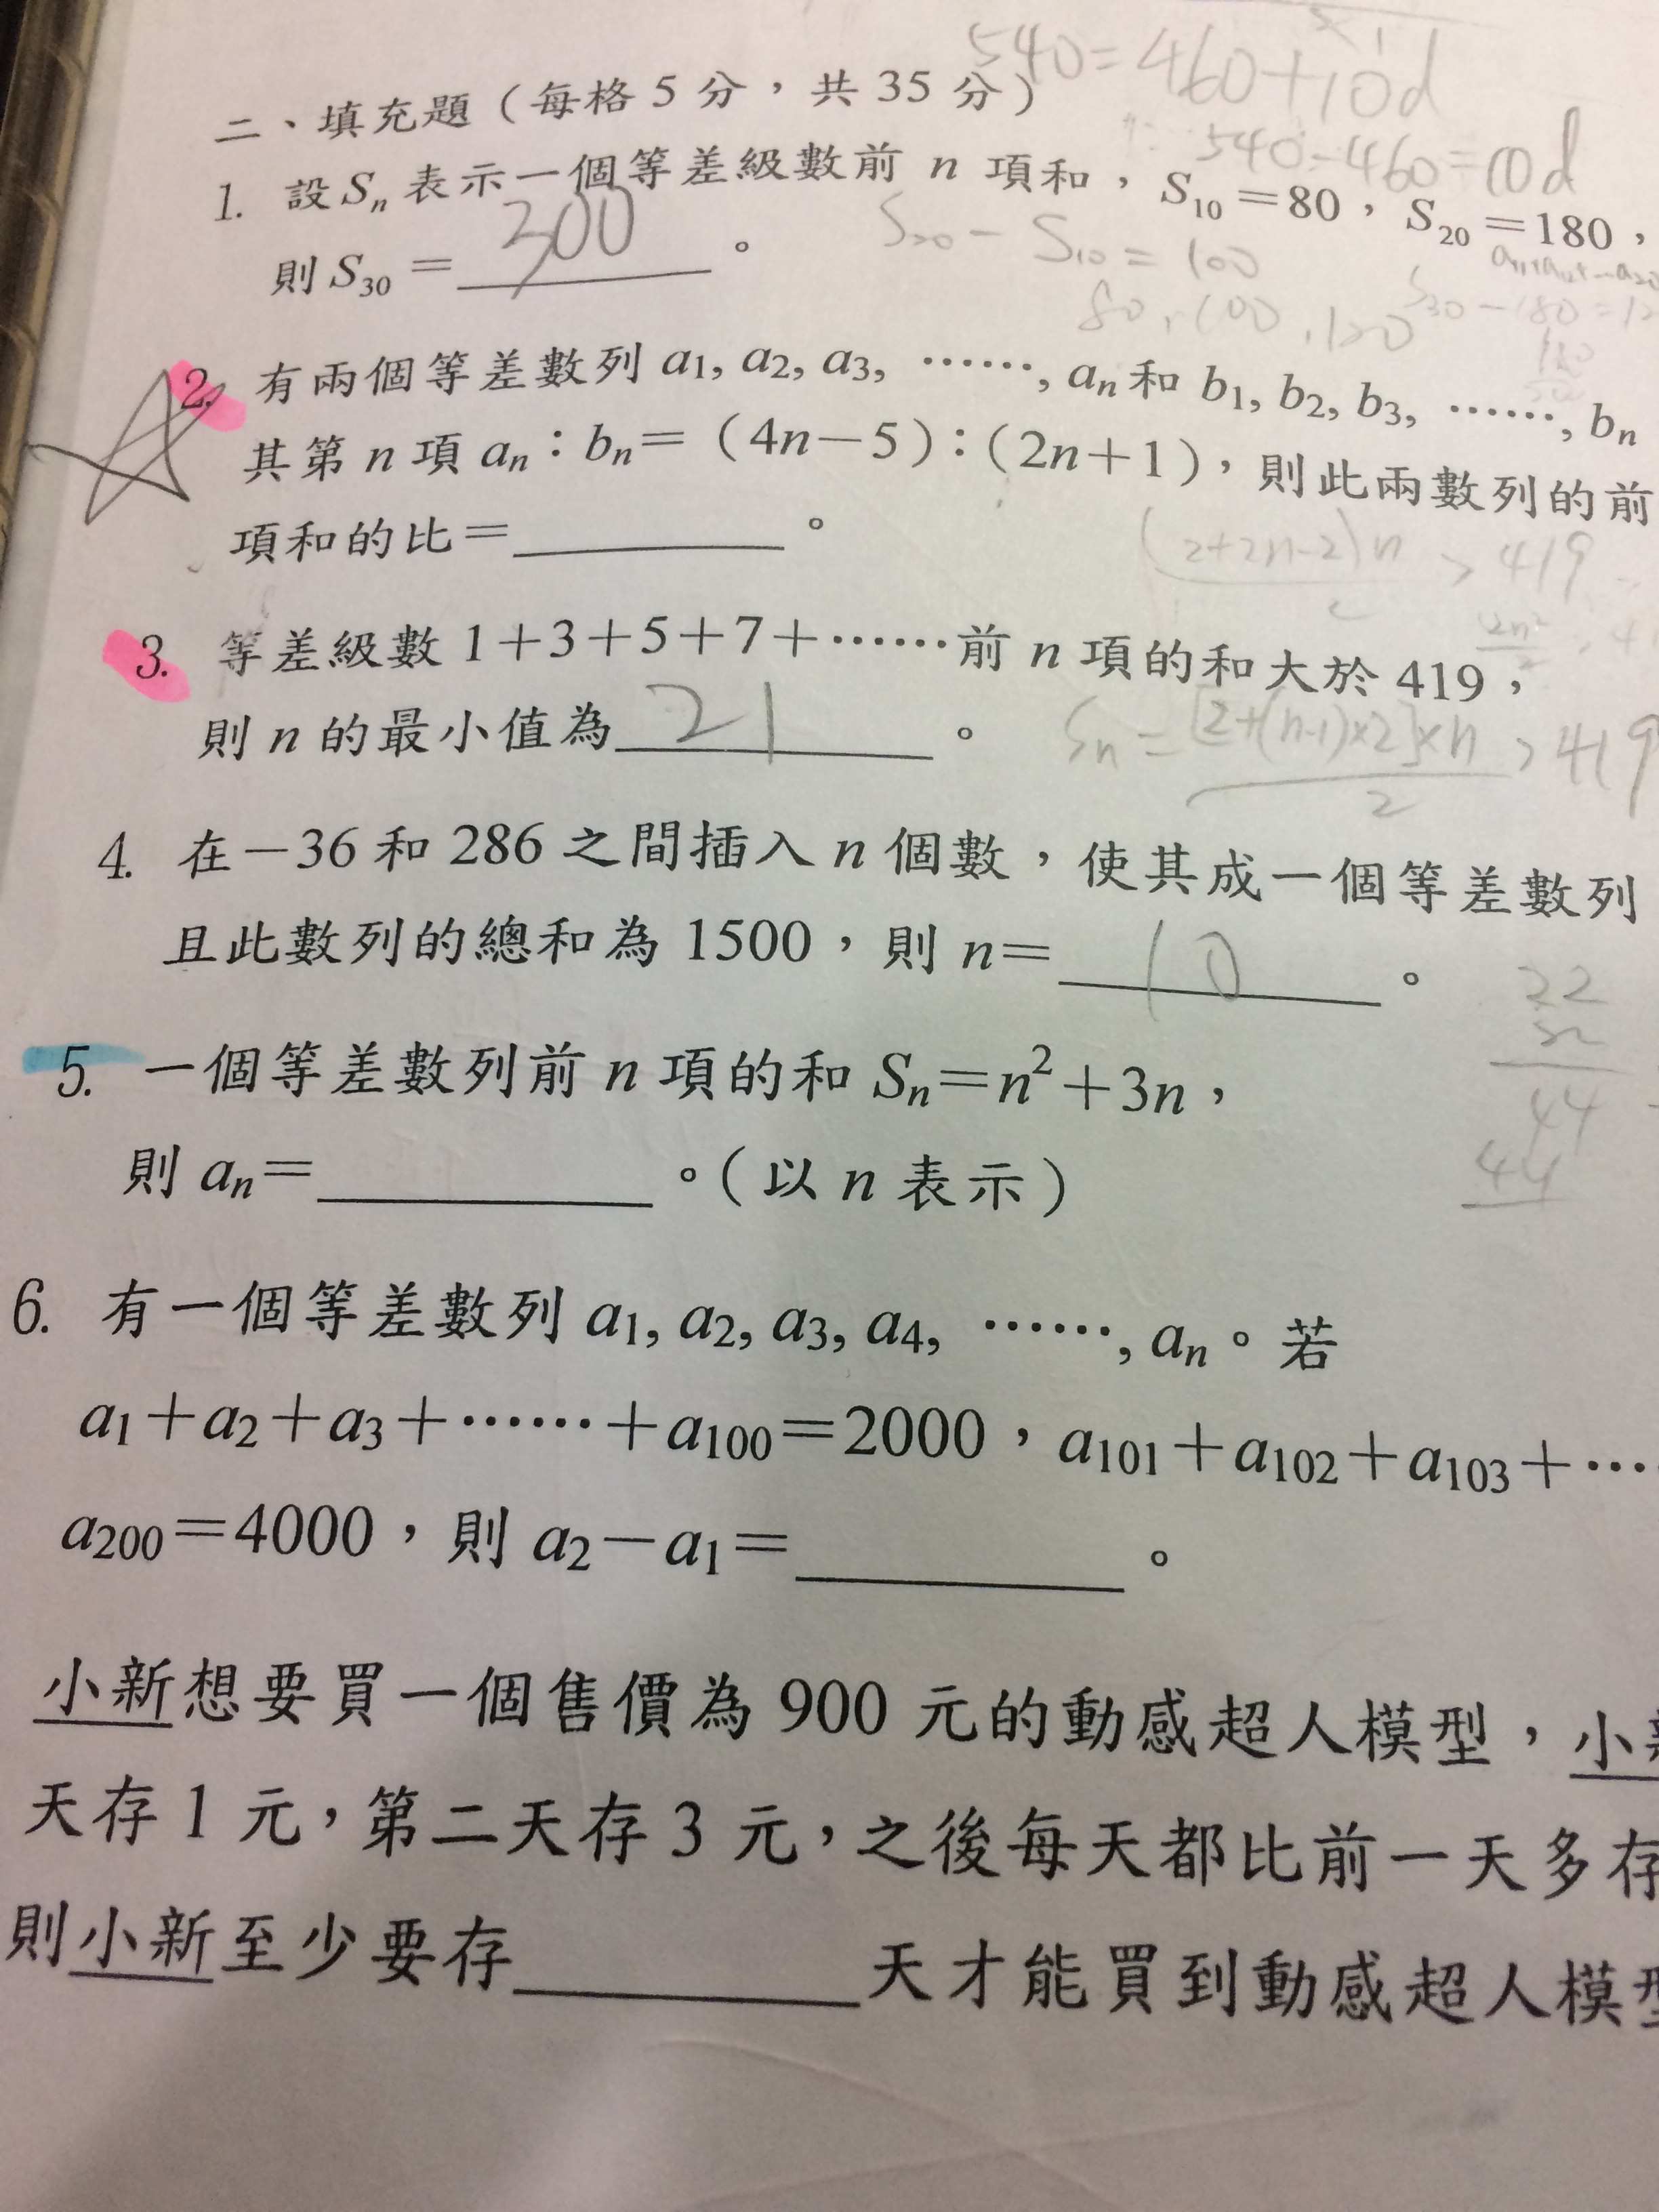 540=460+10d
二、填充題（每格 5 分，共 35 分）
540-460=10d
1. 設 Sn 表示一個等差級數前 n 項和，S10＝80，S20＝180，
則 S30＝300。
S20-S10=100
80,100,120
S30-180=12
2. 有兩個等差數列 a1, a2, a3, ……, an 和 b1, b2, b3, ……, bn
其第 n 項 an：bn＝（4n－5）：（2n＋1），則此兩數列的前
項和的比＝＿＿＿＿。
(2+2n-2)n/2 > 419
3. 等差級數 1＋3＋5＋7＋……前 n 項的和大於 419，
則 n 的最小值為 21。
Sn=[2+(n-1)×2]×n/2 > 419
4. 在－36 和 286 之間插入 n 個數，使其成一個等差數列
且此數列的總和為 1500，則 n＝10。
22
44
44
5. 一個等差數列前 n 項的和 Sn＝n²＋3n，
則 an＝＿＿＿＿。（以 n 表示）
6. 有一個等差數列 a1, a2, a3, a4, ……, an。若
a1＋a2＋a3＋……＋a100＝2000，a101＋a102＋a103＋…
a200＝4000，則 a2－a1＝＿＿＿＿。
小新想要買一個售價為 900 元的動感超人模型，小
天存 1 元，第二天存 3 元，之後每天都比前一天多存
則小新至少要存＿＿＿＿天才能買到動感超人模型